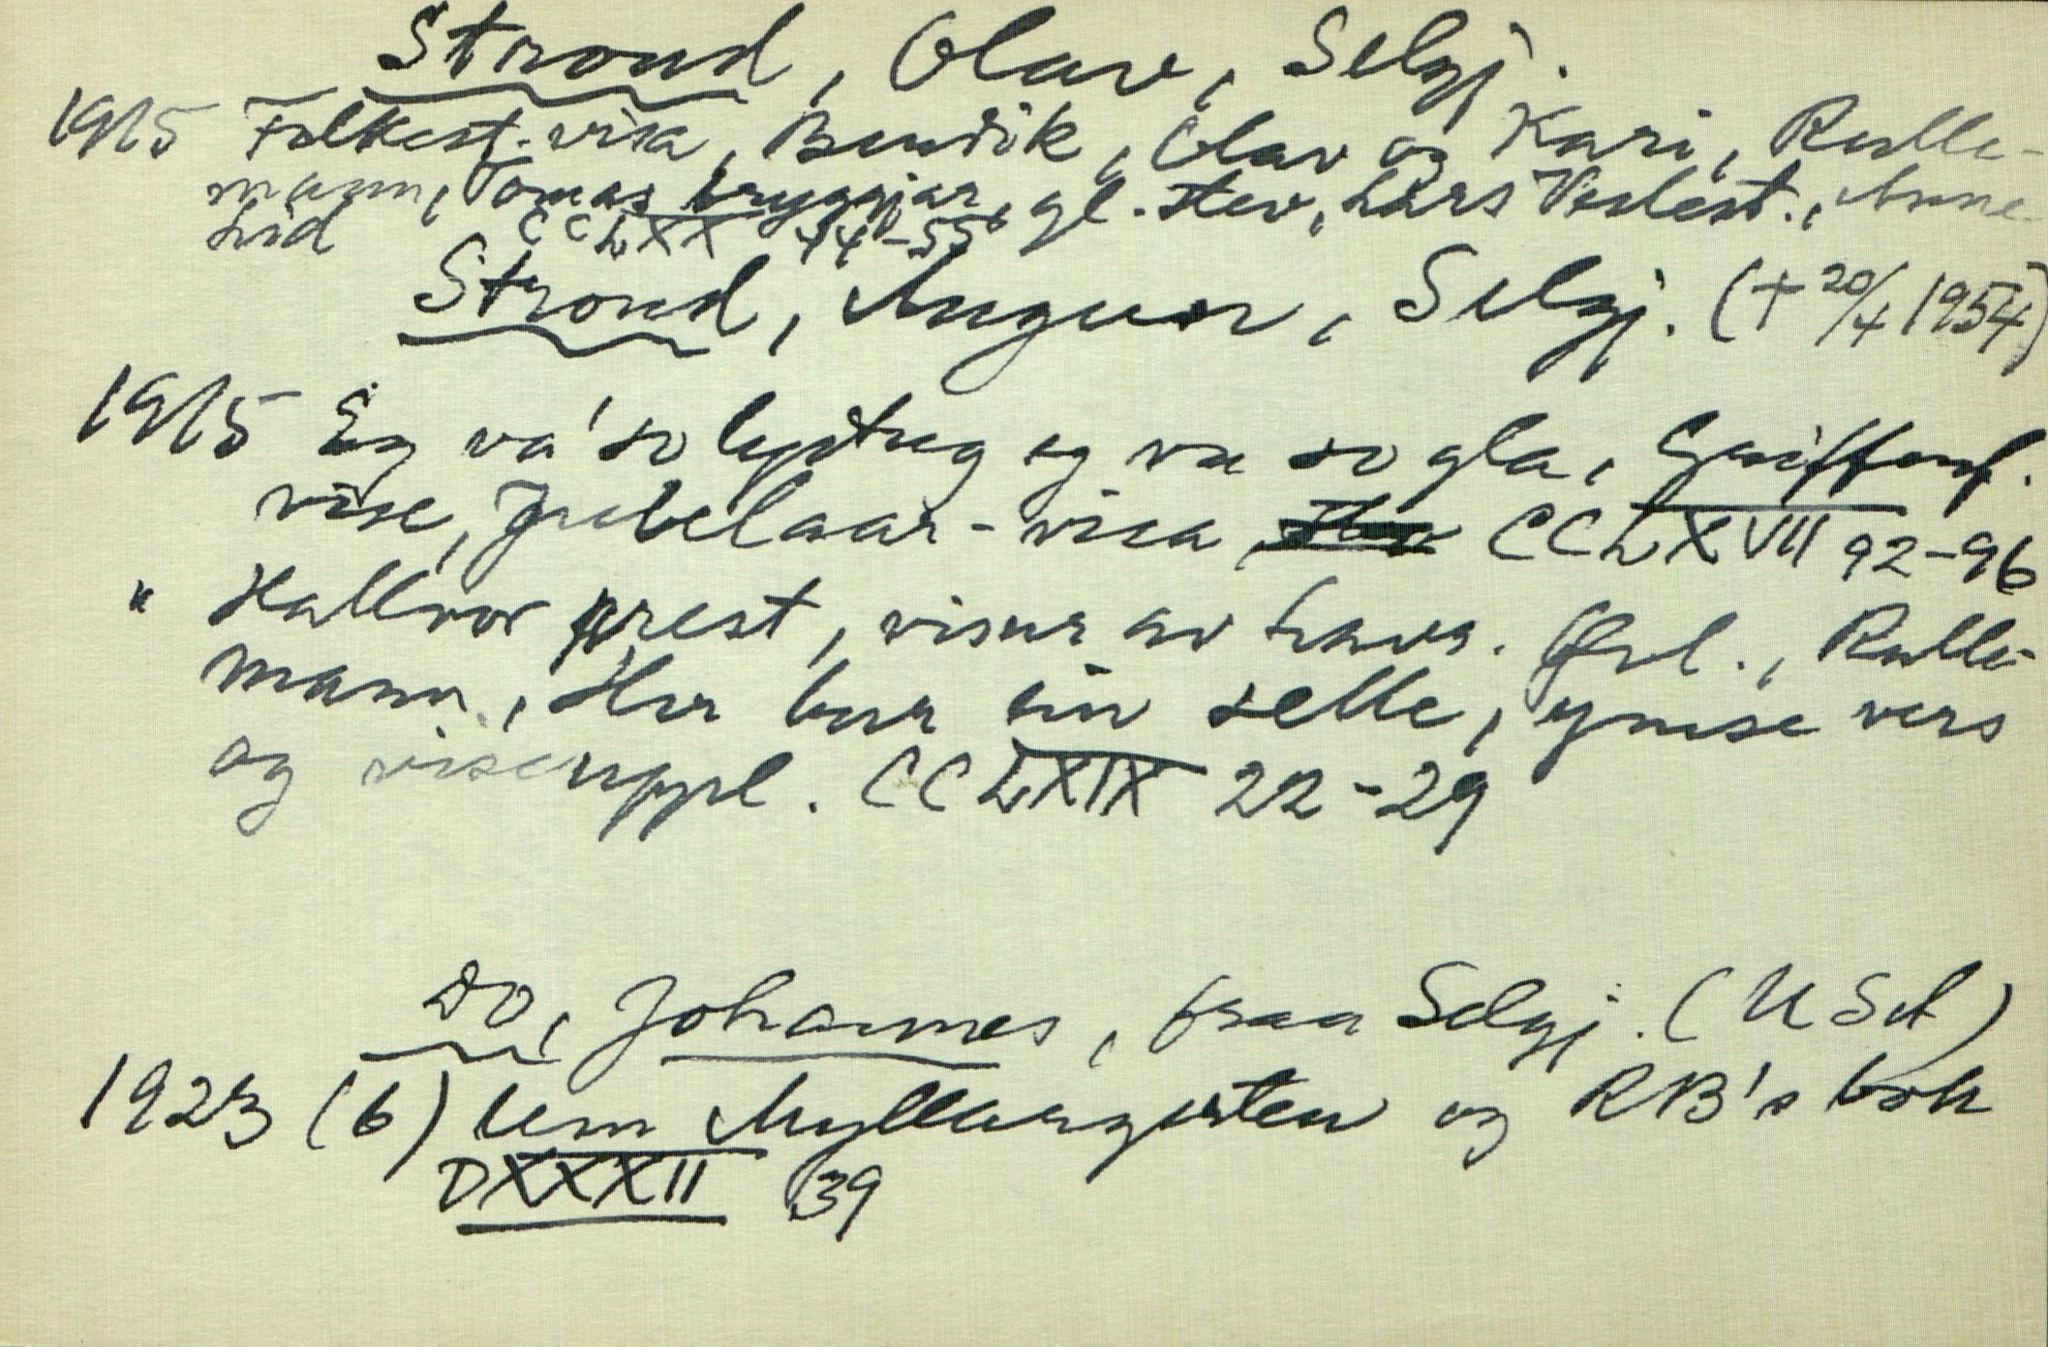 Strond, Olav, Selgj.
1915 Folkest. visa, Bendik, Olav og Kari, Rulle-
mann, Tomas bryggjar, gl. stev, Lars Veslest., Anne
Lid CCLXX 44-55
Strond, Aasgun, Selgj. (+ 20/4 1954)
1915 Eg va' so lystug og va so gla, Griffenf.
vise, Jubelaar-visa CCLXVII 92-96
" Hallvor prest, visur av Havr. , Rulle-
mann, Her bur ein selle, ymse vers
og viseuppl. CCLXIX 22-29
Do, Johannes, fraa Selgj. (U Sch)
1923 (6) Um Myllarguten og RB's bok
DXXXII 39